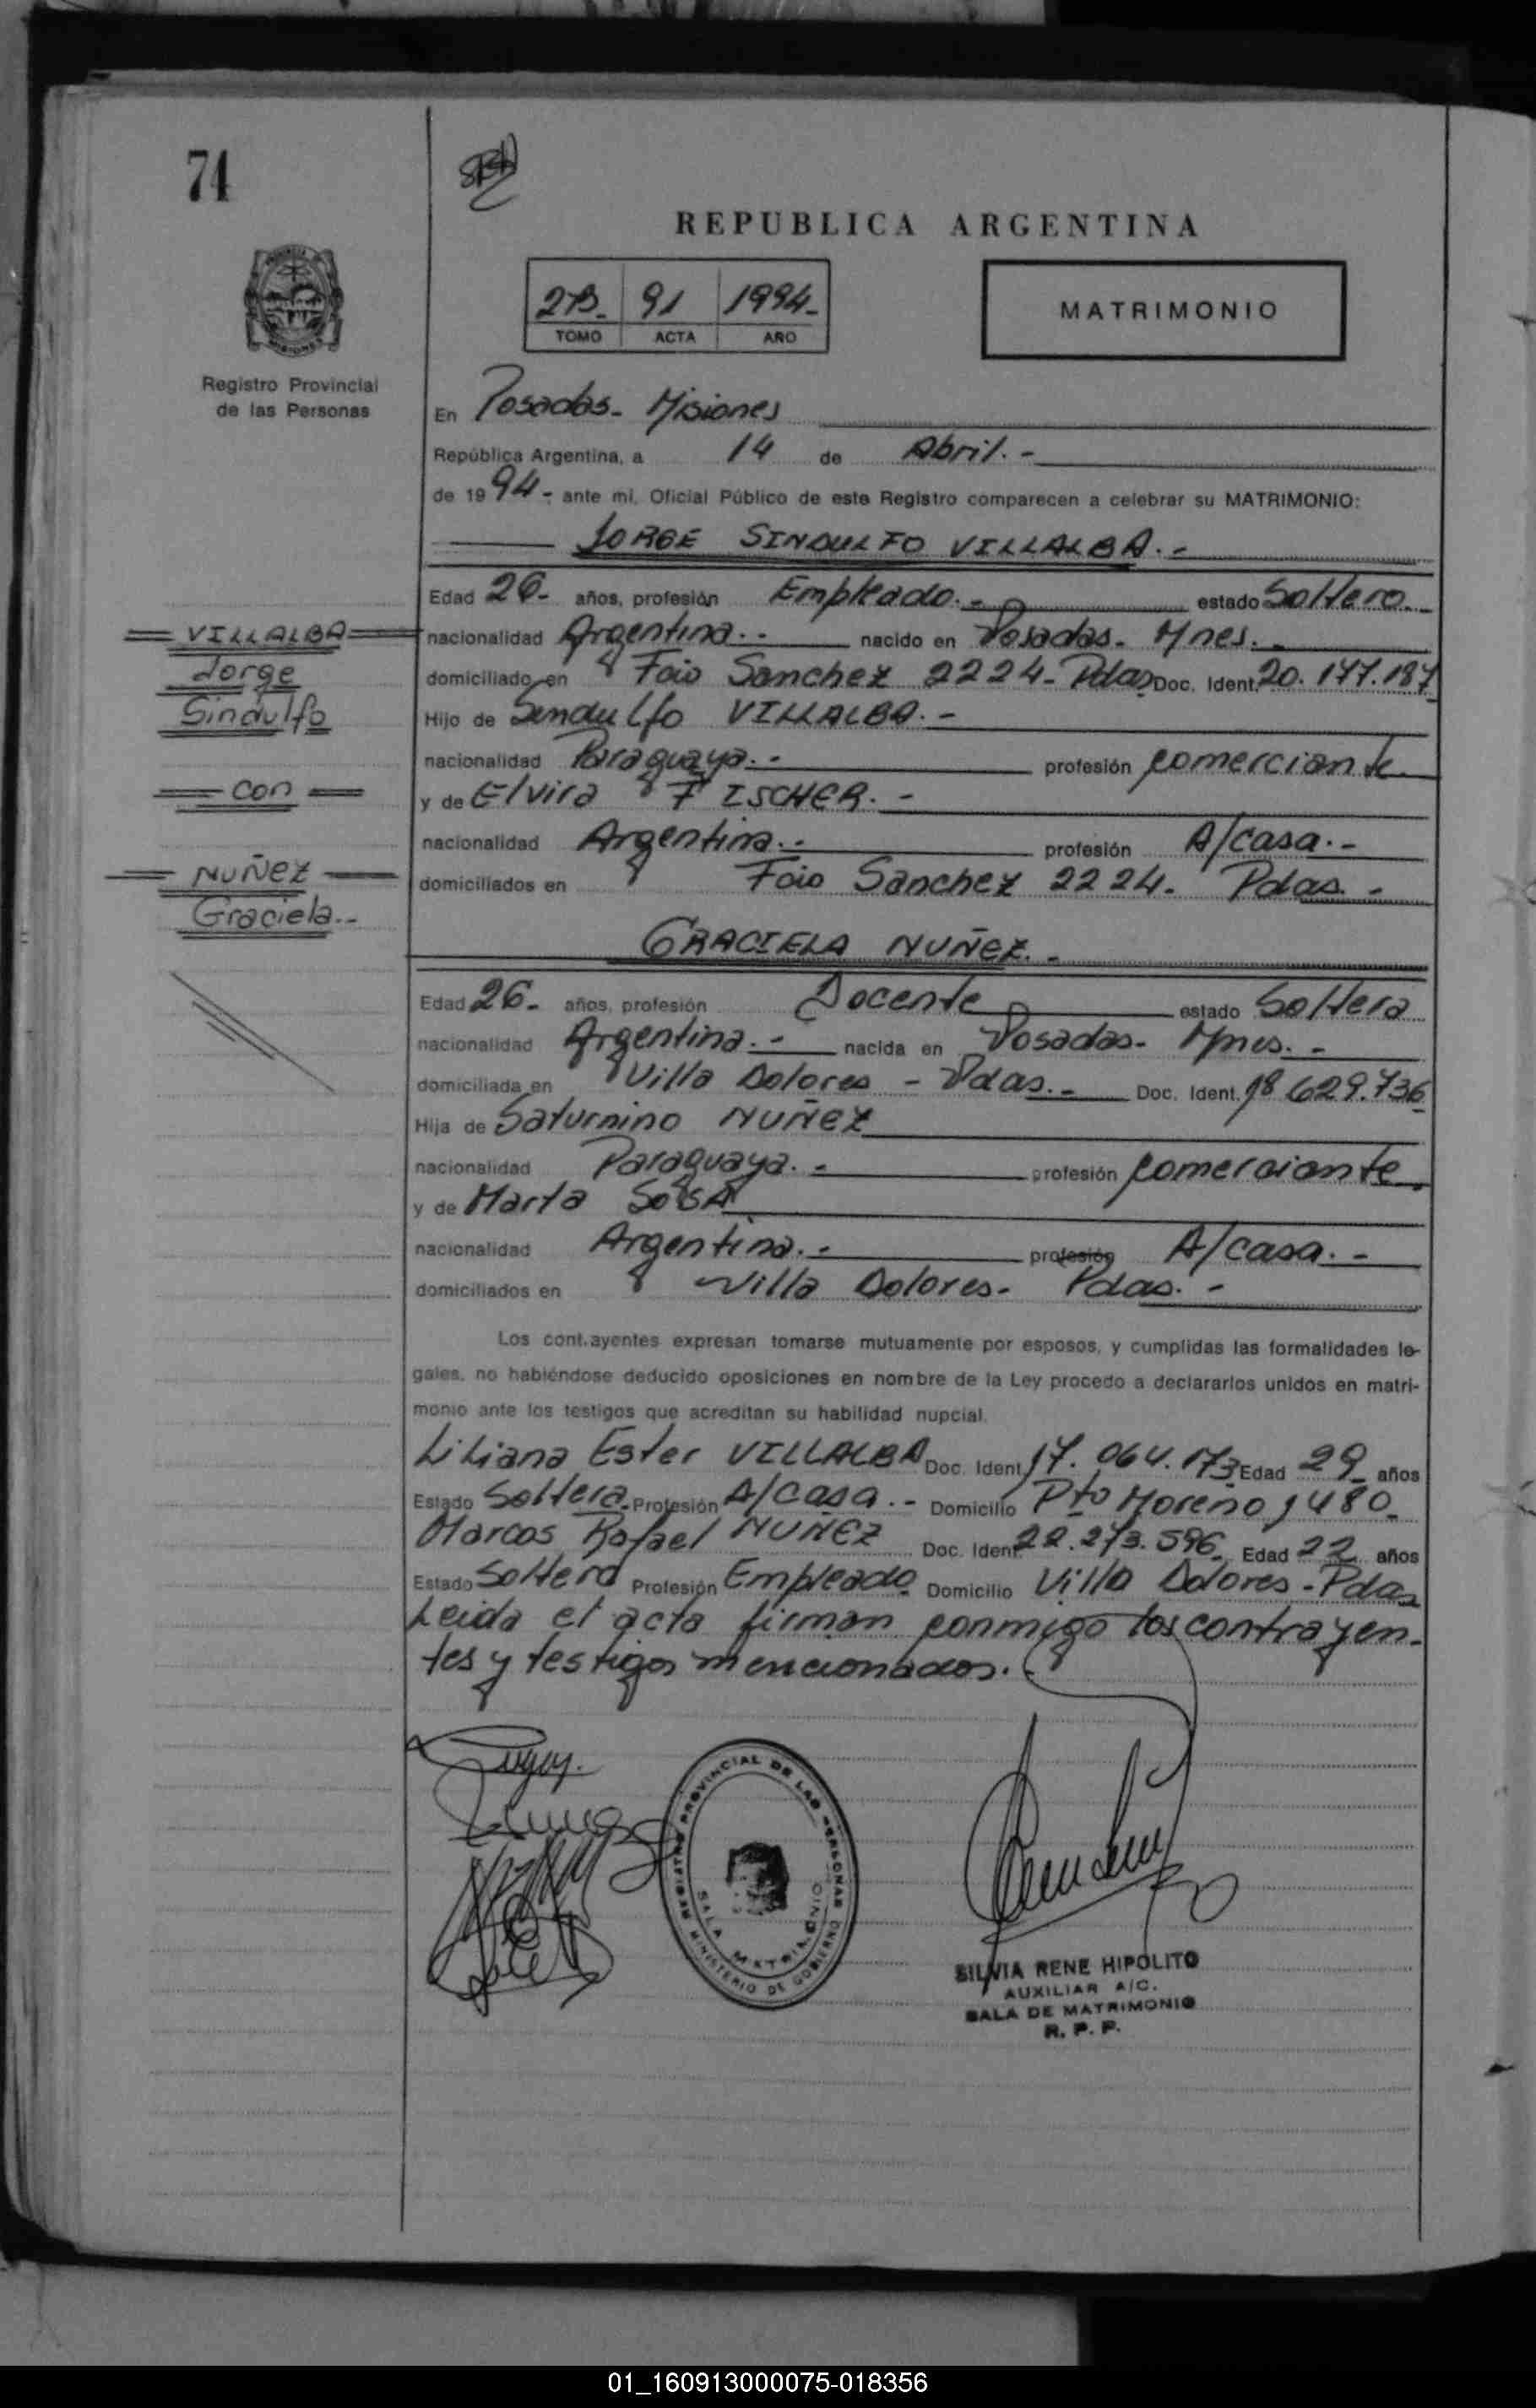 74
REPUBLICA ARGENTINA
2B. 91 1994.-
TOMO ACTA AÑO
MATRIMONIO
Registro Provincial
de las Personas
En Posadas - Misiones
República Argentina, a 14 de Abril.-
de 1994.- ante mi, Oficial Público de este Registro comparecen a celebrar su MATRIMONIO:
JORGE SINDULFO VILLALBA.-
Edad 26.- años, profesión Empleado.- estado Soltero.-
VILLALBA
nacionalidad Argentina.- nacido en Posadas - Mnes.-
Jorge
domiciliado en Fcio Sanchez 2224 - Pdas Doc. Ident. 20.177.187
Sindulfo
Hijo de Sindulfo VILLALBA.-
nacionalidad Paraguaya.- profesión comerciante.
con
y de Elvira FISCHER.-
nacionalidad Argentina.- profesión A/casa.-
NUÑEZ
domiciliados en Fcio Sanchez 2224. Pdas.-
Graciela.-
GRACIELA NUÑEZ.-
Edad 26.- años, profesión Docente estado Soltera
nacionalidad Argentina.- nacida en Posadas - Mnes.-
domiciliada en Villa Dolores - Pdas.- Doc. Ident. 18.629.736
Hija de Saturnino NUÑEZ
nacionalidad Paraguaya.- profesión comerciante.
y de Marta SOSA
nacionalidad Argentina.- profesión A/casa.-
domiciliados en Villa Dolores - Pdas.-
Los cont.ayentes expresan tomarse mutuamente por esposos, y cumplidas las formalidades le-
gales, no habiéndose deducido oposiciones en nombre de la Ley procedo a declararlos unidos en matri-
monio ante los testigos que acreditan su habilidad nupcial.
Liliana Ester VILLALBA Doc. Ident. 17.064.173 Edad 29 años
Estado Soltera Profesión A/casa.- Domicilio Pto Moreno 1480
Marcos Rafael NUÑEZ Doc. Ident. 22.273.596 Edad 22 años
Estado Soltero Profesión Empleado Domicilio Villa Dolores - Pdas
Leida el acta firman conmigo los contrayen-
tes y testigos mencionados.-
REGISTRO PROVINCIAL DE LAS PERSONAS
SALA MATRIMONIO
MINISTERIO DE GOBIERNO
SILVIA RENE HIPOLITO
AUXILIAR A/C.
SALA DE MATRIMONIO
R. P. P.
01_160913000075-018356